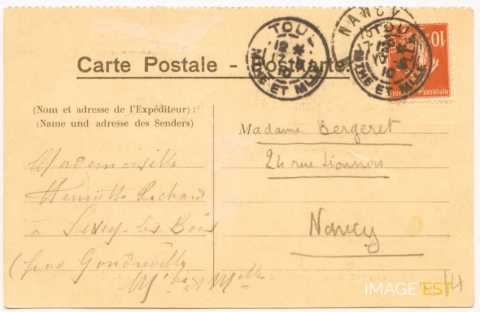 Carte Postale - Postkarte
TOUL
12 *
10
MTHE ET MLLE
NANCY
TOUL
10
MTHE ET MLLE
10
(Nom et adresse de l'Expéditeur) :
(Name und adresse des Senders)
Mademoiselle
Henriette Richard
à Sexey-les-Bois
(par Gondreville
Mthe & Mlle
Madame Bergeret
24 rue
Nancy
IMAGE'EST